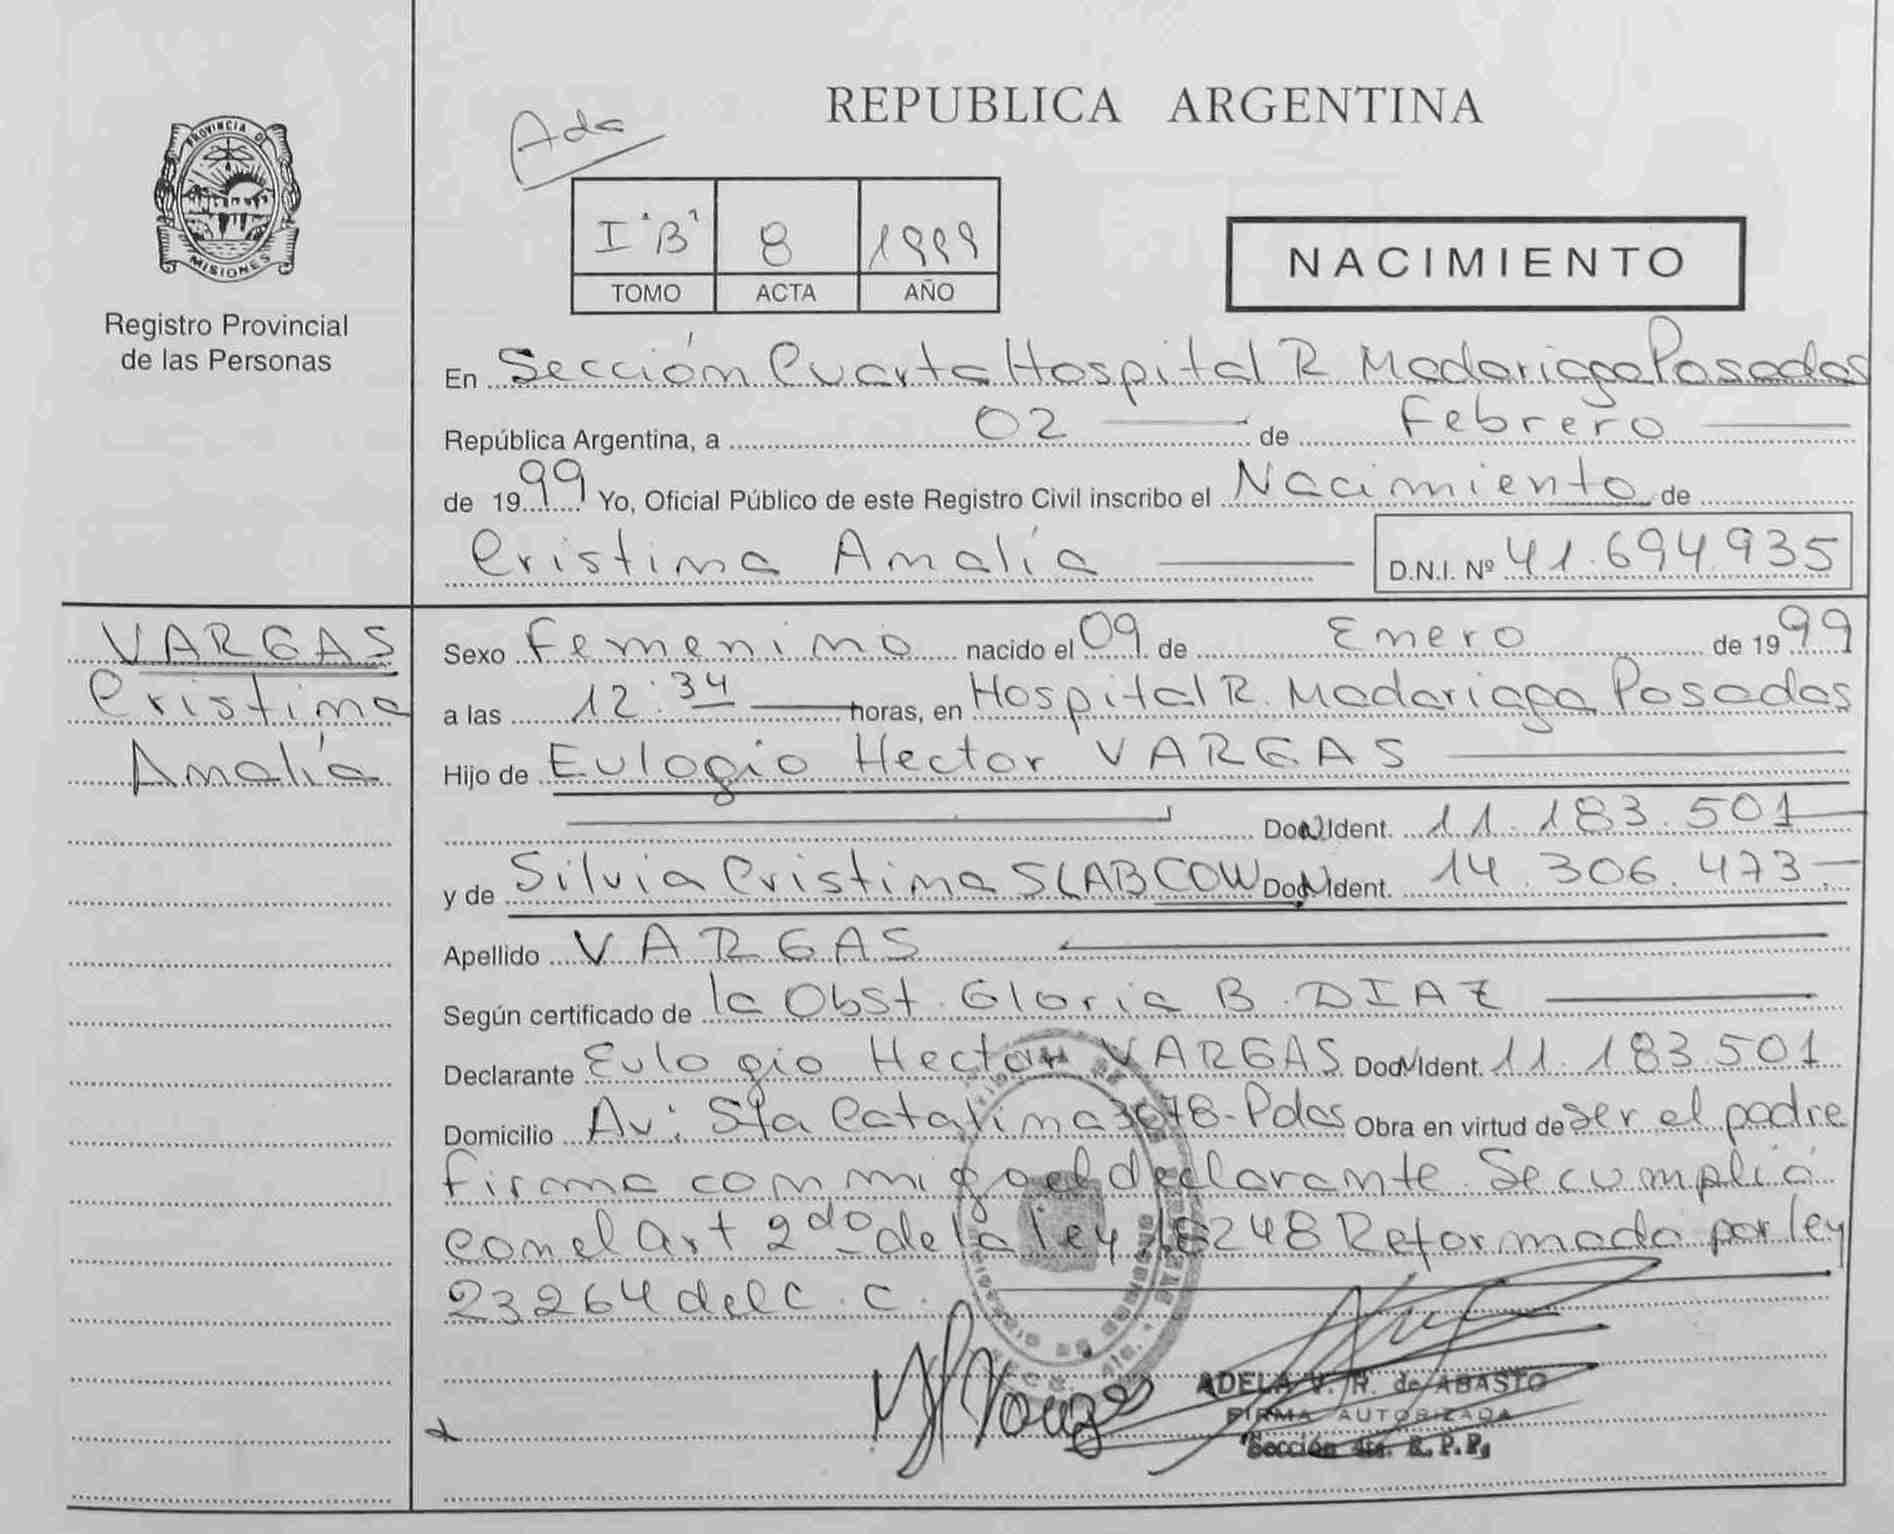 REPUBLICA ARGENTINA
Ada
PROVINCIA DE
MISIONES
Registro Provincial
de las Personas
I "B" 8 1999
TOMO ACTA AÑO
NACIMIENTO
En Sección Cuarta Hospital R Madariaga Posadas
República Argentina, a 02 de Febrero
de 1999 Yo, Oficial Público de este Registro Civil inscribo el Nacimiento de
Cristina Amalía D.N.I. Nº 41.694.935
VARGAS
Cristina
Amalía
Sexo Femenino nacido el 09 de Enero de 1999
a las 12:34 horas, en Hospital R. Madariaga Posadas
Hijo de Eulogio Hector VARGAS
Ident. 11.183.501
y de Silvia Cristina SLABCOW Ident. 14.306.473.-
Apellido VARGAS
Según certificado de la Obst. Gloria B. DIAZ
Declarante Eulogio Hector VARGAS Ident. 11.183.501
Domicilio Av: Sta Catalina 3678-Pdas Obra en virtud de ser el padre
firma conmigo el declarante. Se cumplió
con el Art 2do de la ley 18248 Reformada por ley
23264 del C.C.
ADELA V. R. de ABASTO
FIRMA AUTORIZADA
Sección 4ta. R.P.P.